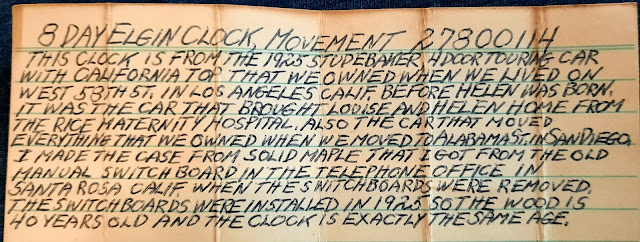 8 DAY ELGIN CLOCK MOVEMENT 27800114
THIS CLOCK IS FROM THE 1925 STUDEBAKER, 4 DOOR TOURING CAR
WITH CALIFORNIA TOP THAT WE OWNED WHEN WE LIVED ON
WEST 58TH ST. IN LOS ANGELES CALIF. BEFORE HELEN WAS BORN.
IT WAS THE CAR THAT BROUGHT LOUISE AND HELEN HOME FROM
THE RICE MATERNITY HOSPITAL. ALSO THE CAR THAT MOVED
EVERYTHING THAT WE OWNED WHEN WE MOVED TO ALABAMA ST. IN SAN DIEGO.
I MADE THE CASE FROM SOLID MAPLE THAT I GOT FROM THE OLD
MANUAL SWITCH BOARD IN THE TELEPHONE OFFICE IN
SANTA ROSA CALIF. WHEN THE SWITCHBOARDS WERE REMOVED.
THE SWITCHBOARDS WERE INSTALLED IN 1925 SO THE WOOD IS
40 YEARS OLD AND THE CLOCK IS EXACTLY THE SAME AGE.